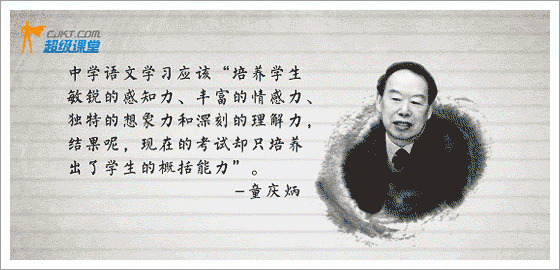 CJKT.COM
超级课堂
中学语文学习应该“培养学生
敏锐的感知力、丰富的情感力、
独特的想象力和深刻的理解力，
结果呢，现在的考试却只培养
出了学生的概括能力”。
–童庆炳